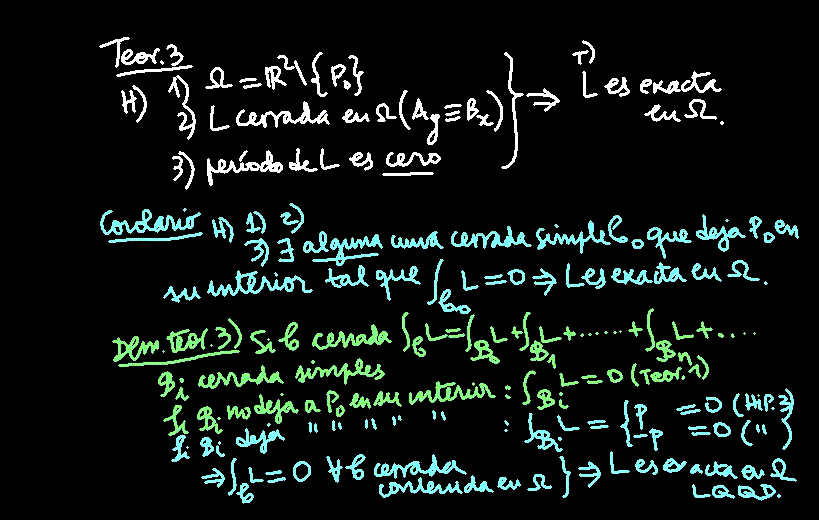 Teor. 3
H) 1) Ω = ℝ²\{P₀}
2) L cerrada en Ω (A_y ≡ B_x)
3) período de L es cero
} ⇒ T) L es exacta en Ω.
Corolario H) 1) 2)
3) ∃ alguna curva cerrada simple 𝒞₀ que deja P₀ en
su interior tal que ∫_𝒞₀ L = 0 ⇒ L es exacta en Ω.
Dem. Teor. 3) Si 𝒞 cerrada ∫_𝒞 L = ∫_𝓑₀ L + ∫_𝓑₁ L + ...... + ∫_𝓑ₙ L + ....
𝓑ᵢ cerrada simples
Si 𝓑ᵢ no deja a P₀ en su interior : ∫_𝓑ᵢ L = 0 (Teor. 1)
Si 𝓑ᵢ deja " " " " " : ∫_𝓑ᵢ L = { P = 0 (Hip. 3)
-P = 0 ( " )
⇒ ∫_𝒞 L = 0 ∀ 𝒞 cerrada contenida en Ω } ⇒ L es exacta en Ω
L.Q.Q.D.